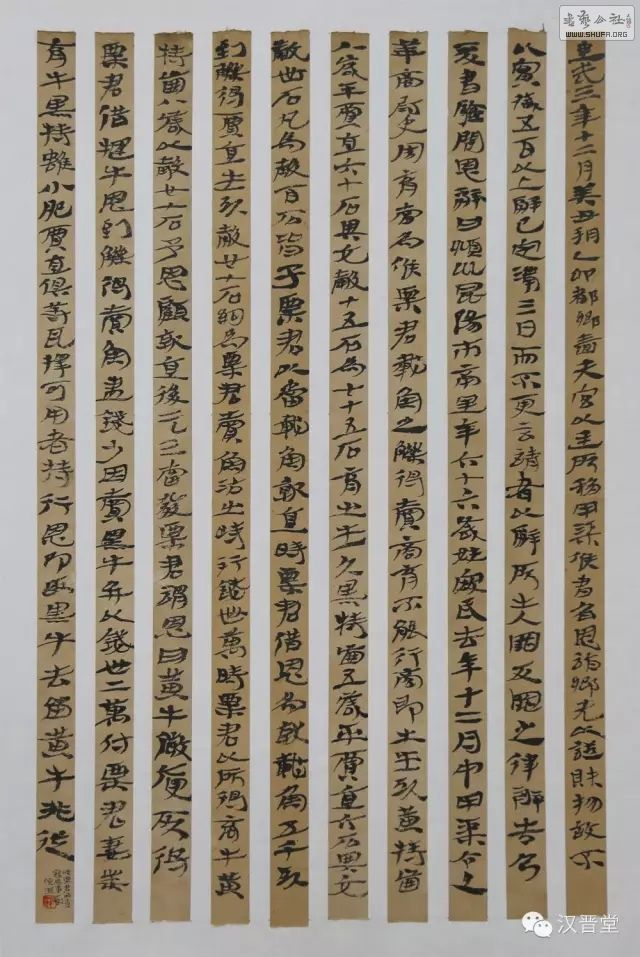 建武三年十二月癸丑朔乙卯都鄉嗇夫宮以廷所移甲渠候書召恩詣鄉先以證財物故不
以實臧五百以上辭已定滿三日而不更言請者以辭所出入罪反罪之律辨告乃
爰書驗問恩辭曰潁川昆陽市南里年六十六歲姓寇氏去年十二月中甲渠令史
華商尉史周育當為候粟君載魚之觻得賣商育不能行商即出牛一頭黃特齒
八歲平賈直六十石與它穀十五石為七十五石育出牛一頭黑特齒五歲平賈直六十石與它
穀卌石凡為穀百石皆予粟君以當載魚就直時粟君借恩為就載魚五千頭
到觻得賈直牛一頭穀廿七石約為粟君賣魚沽出時行錢卌萬時粟君以所得商牛黃
特齒八歲以穀廿七石予恩顧就直後二三日當發粟君謂恩曰黃牛微庾所得
粟君借牛恩到觻得賣魚盡錢少因賣黑牛并以錢卅二萬付粟君妻業
育牛黑特雖小肥賈直俱等耳擇可用者持行恩即取黑牛去留黃牛非從
書藝公社
WWW.SHUFA.ORG
汉晋堂